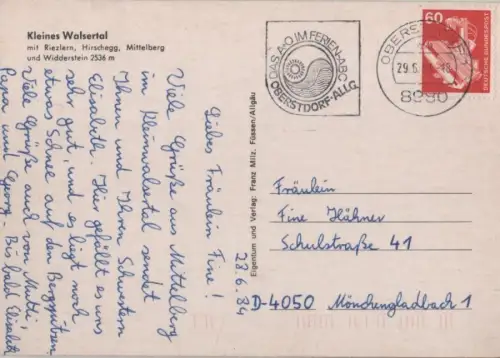 Kleines Walsertal
mit Riezlern, Hirschegg, Mittelberg
und Widderstein 2536 m
DAS A+O IM FERIEN-ABC
OBERSTDORF-ALLG.
OBERSTDORF
29.6.
8980
60
DEUTSCHE BUNDESPOST
Eigentum und Verlag: Franz Milz, Füssen/Allgäu
28.6.84
Liebes Fräulein Fine!
Viele Grüße aus Mittelberg
im Kleinwalsertal sendet
Ihnen und Ihren Schwestern
Elisabeth. Hier gefällt es uns
sehr gut, und es liegt noch
etwas Schnee auf den Bergspitzen.
Viele Grüße auch von Mutti,
Papa und Georg. Bis bald Elisabeth
Fräulein
Fine Hühner
Schulstraße 41
D-4050 Mönchengladbach 1